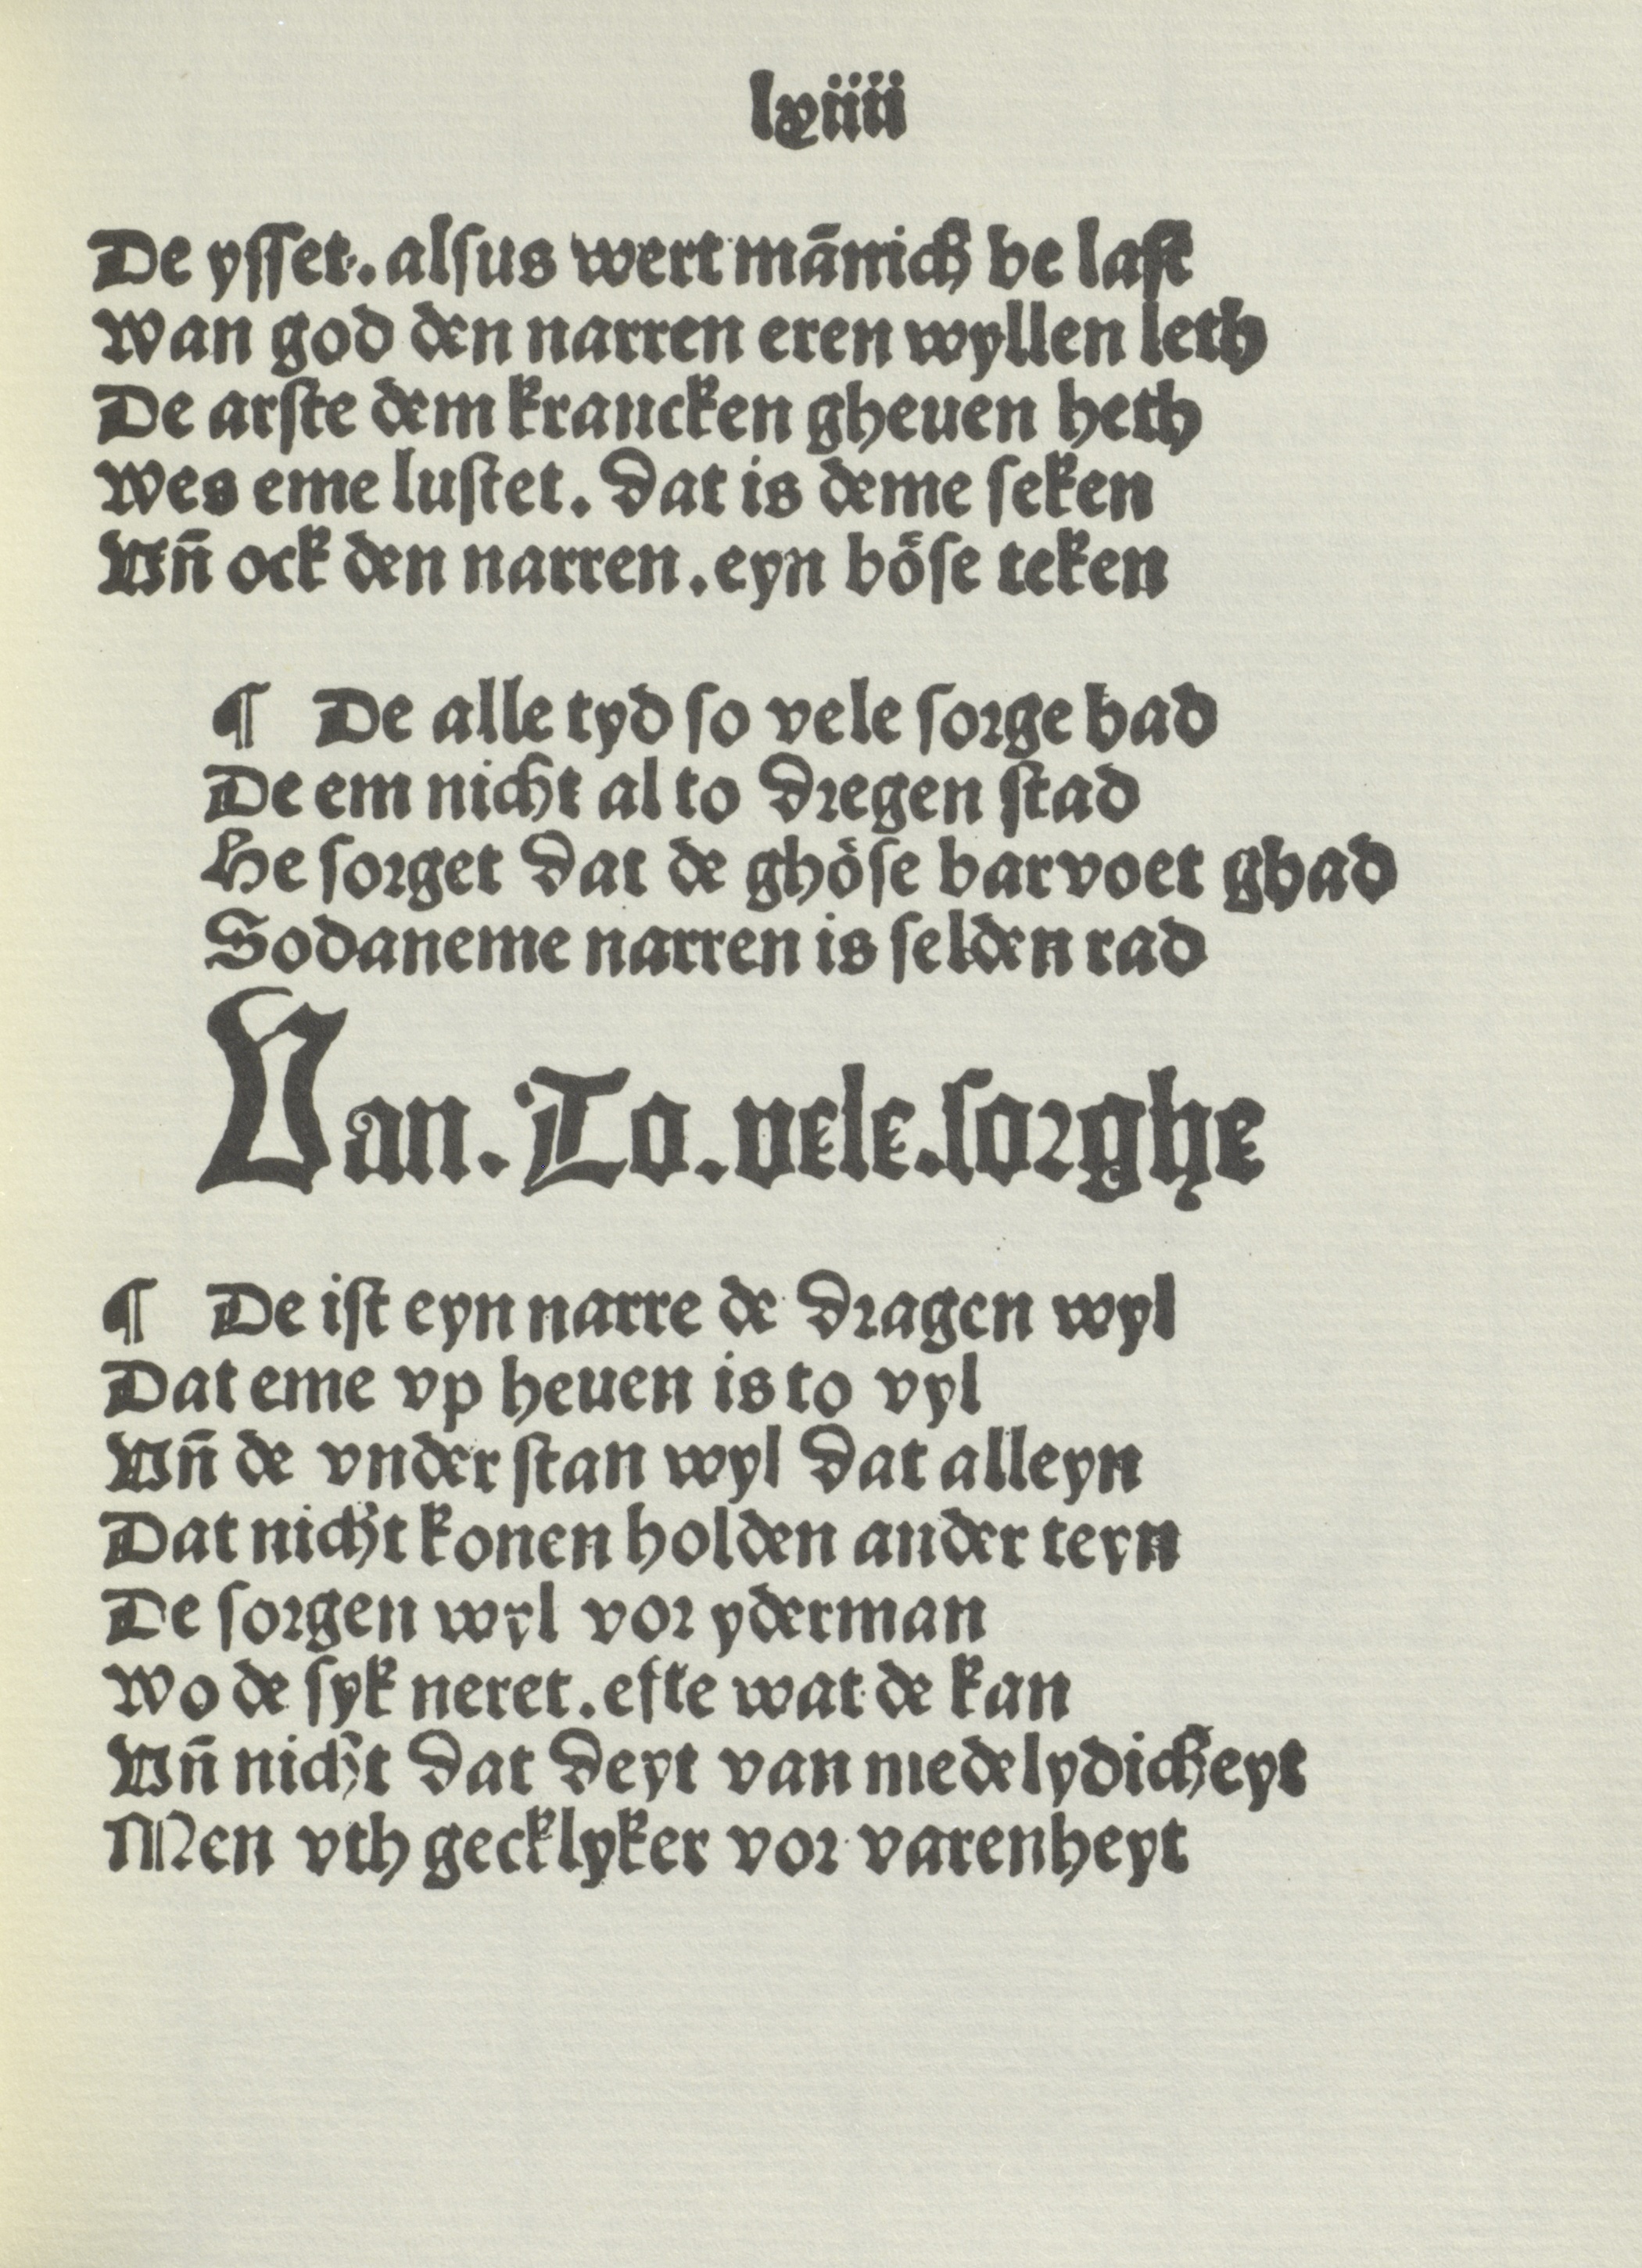 lxiiii
De ysset. alsus wert mānich be last
Wan god den narren eren wyllen leth
De arste dem krancken gheuen heth
Wes eme lustet. dat is deme seken
Vñ ock den narren. eyn böse teken
¶ De alle tyd so vele sorge had
De em nicht al to dregen stad
He sorget dat de ghöse barvoet ghad
Sodaneme narren is selden rad
Van. To. vele. sorghe
¶ De ist eyn narre de dragen wyl
Dat eme vp heuen is to vyl
Vñ de vnder stan wyl dat alleyn
Dat nicht konen holden ander teyn
De sorgen wyl vor yderman
Wo de syk neret. efte wat de kan
Vñ nicht dat deyt van medelydicheyt
Men vth gecklyker vor varenheyt